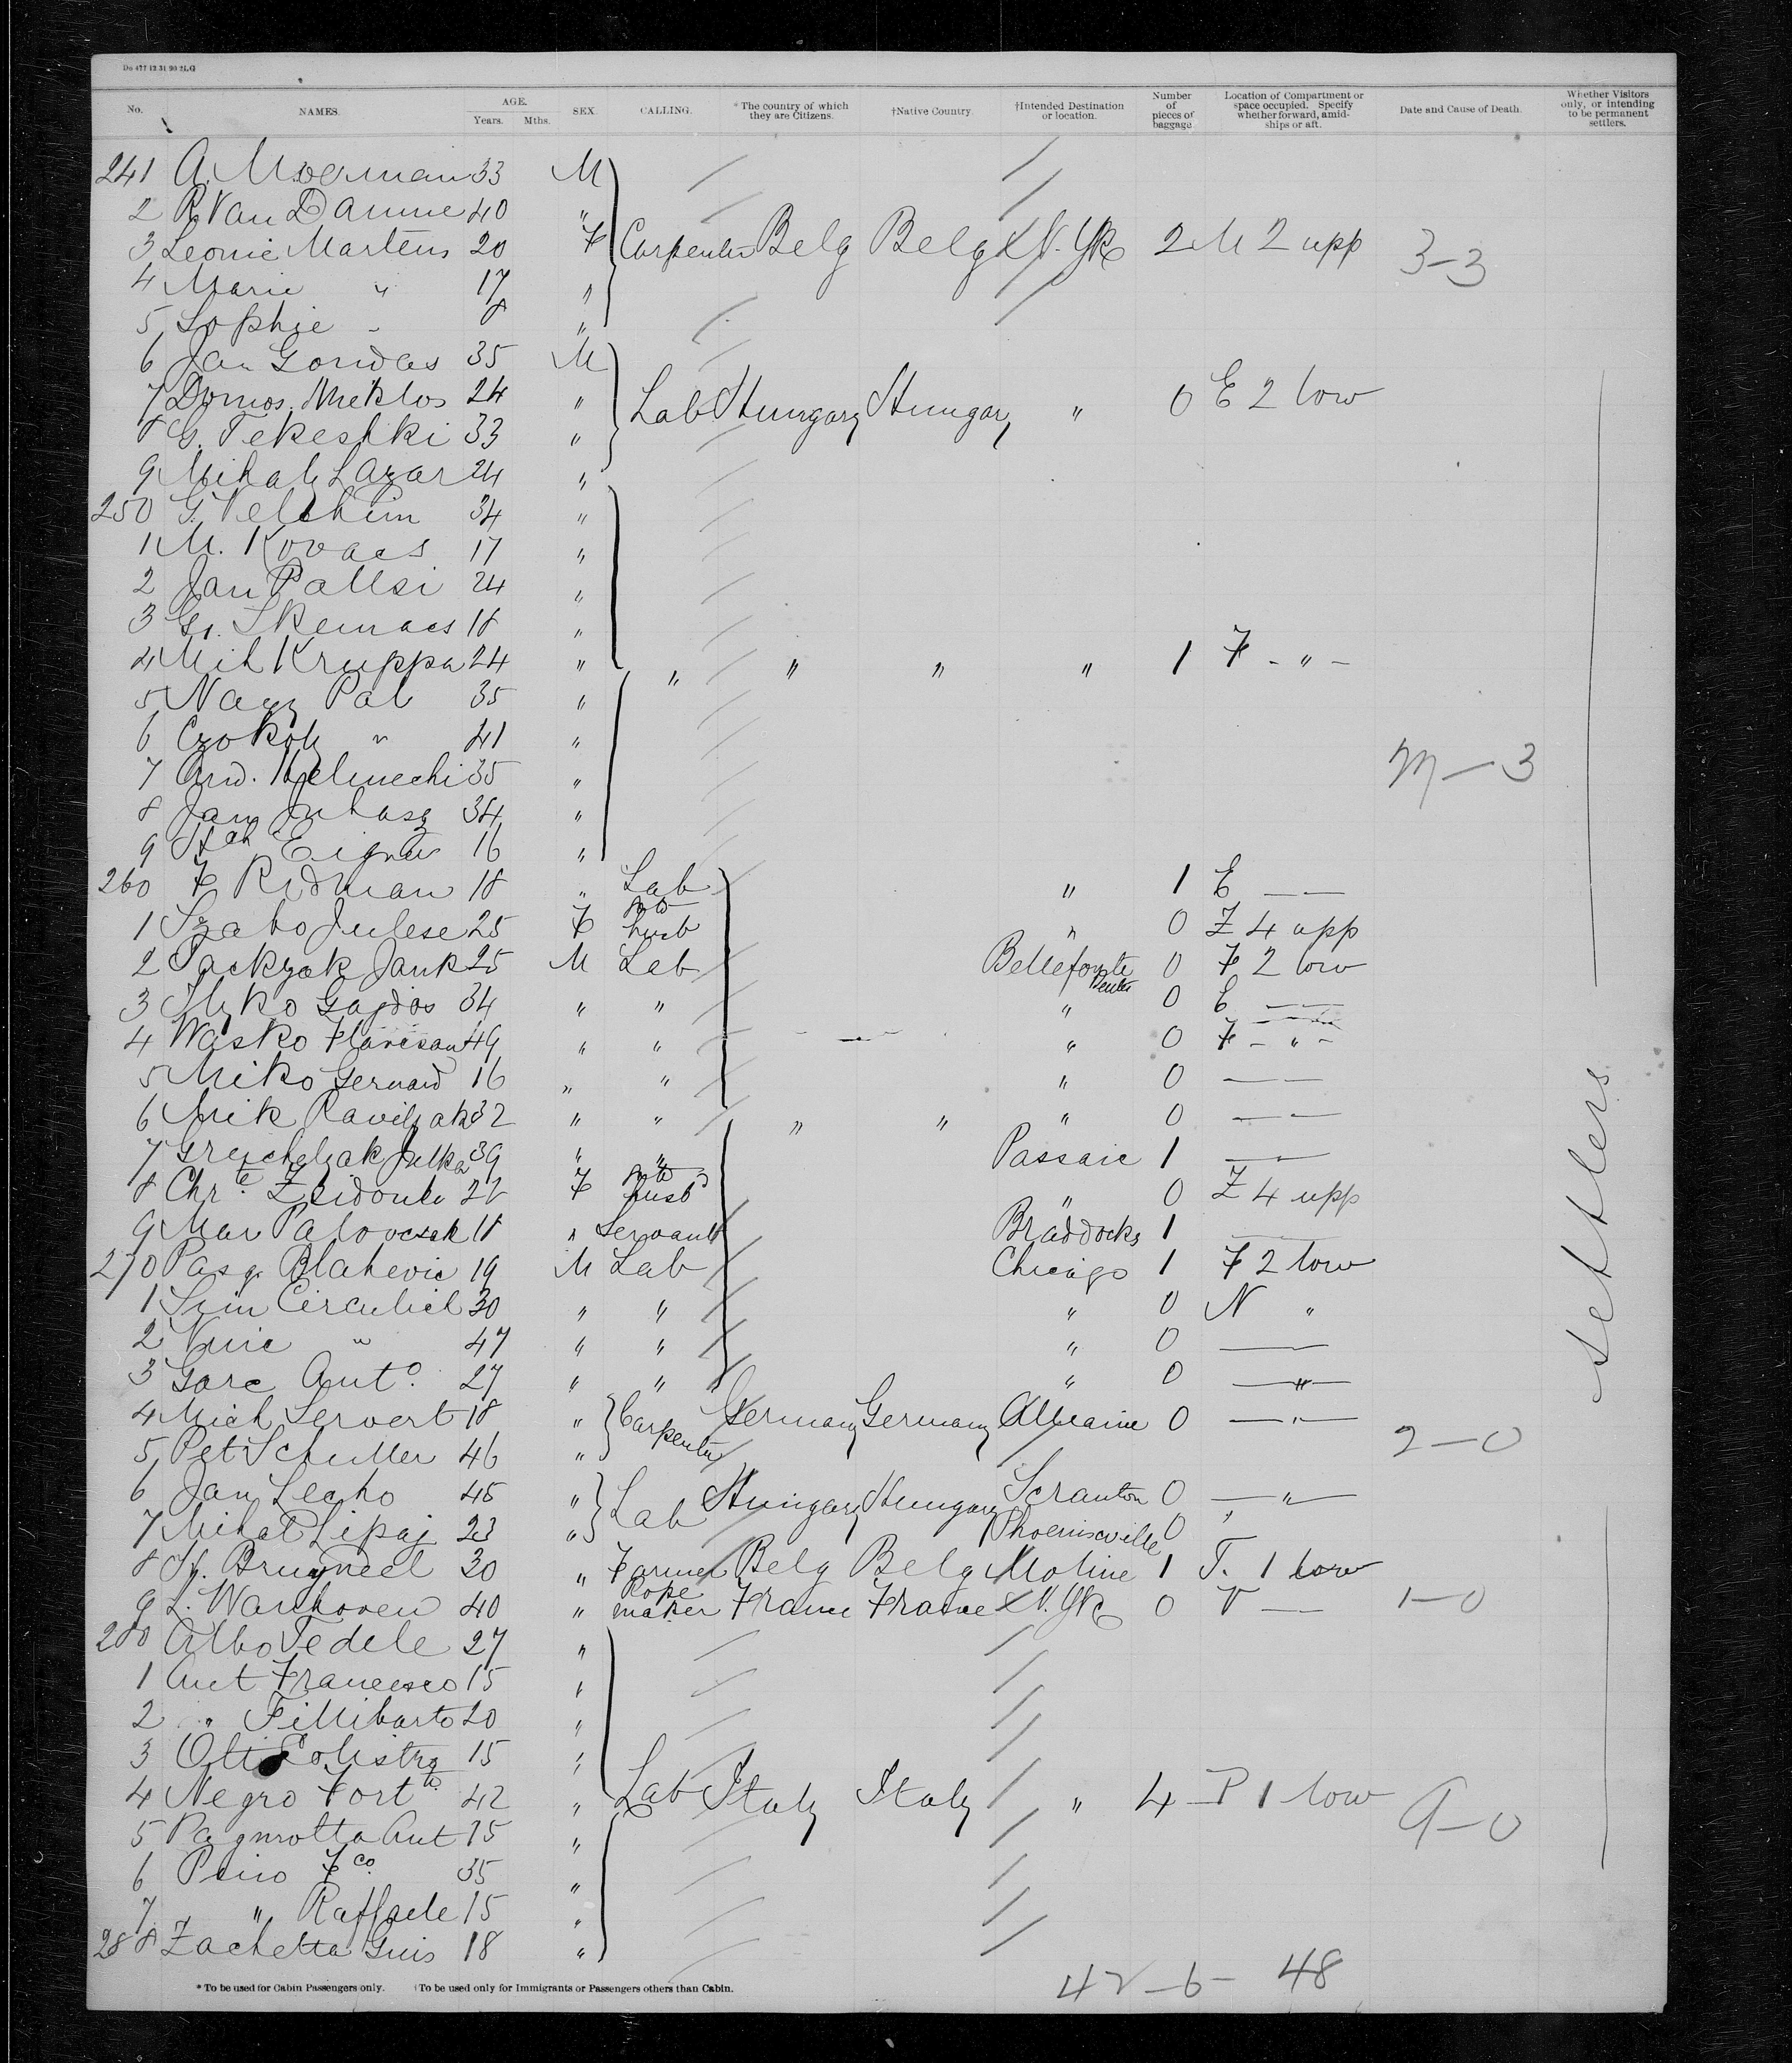 Do 477 12 31 90 2LG
No. NAMES. AGE. Years. Mths. SEX. CALLING. *The country of which they are Citizens. †Native Country. †Intended Destination or location. Number of pieces of baggage Location of Compartment or space occupied. Specify whether forward, amidships or aft. Date and Cause of Death. Whether Visitors only, or intending to be permanent settlers.
241 A. Moerman 33 M
2 R Van Damme 40 "
3 Leonie Martens 20 F Carpenter Belg Belg N. Yk 2 M 2 upp 3-3
4 Marie " 17 "
5 Sophie " 8 "
6 Jan Gordas 35 M
7 Domos. Meklos 24 " Lab Hungary Hungary " 0 E 2 low
8 G. Tekeshki 33 "
9 Mihaly Lazar 24 "
250 G. Velchim 34 "
1 M. Kovacs 17 "
2 Jan Pallsi 24 "
3 Skemacs 18 "
4 Mih Kruppa 24 " " " " " 1 F - " -
5 Nagy Pal 35 "
6 Czokoly " 41 "
7 And. 35 " M-3
8 Jan Juhasz 34 "
9 16 "
260 F Ridman 18 " Lab " 1 E
1 Szabo Julese 25 F to husb " 0 Z 4 upp
2 Packzak Jank 25 M Lab Bellefonte 0 F 2 low
3 Gajdos 34 " " " 0 E
4 Wasko 49 " " " 0 F - " -
5 Miko Gernard 16 " " " 0
6 Mik 32 " " " " " 0
7 39 " " Passaic 1
8 Chr. F to husb " 0 Z 4 upp
9 Mar Palovcsak 18 " Servant Braddocks 1
270 Pasq. Blahevic 19 M Lab Chicago 1 F 2 low
1 30 " " " 0 N "
2 Vuic " 47 " " " 0
3 Gare Anto. 27 " " " 0 "
4 Mich Servert 18 " Carpenter Germany Germany 0 "
5 Pet Schuller 46 " 2-0
6 Jan Lecho 45 " Lab Hungary Hungary Scranton 0 "
7 Mihal Lipaj 23 " Phoenixville 0 "
8 Bruyneel 30 " Farmer Belg Belg Moline 1 T. 1 low
9 L. Wanhoven 40 " Rope maker France France N. Yk 0 V 1-0
280 Albo Fedele 27 "
1 Ant Francesco 15 "
2 " Fillibarto 20 "
3 15 "
4 Negro Fortto 42 " Lab Italy Italy " 4 P 1 low 9-0
5 Pagnrotta Ant 15 "
6 Fco 35 "
7 " Raffaele 15 "
288 Zachetta Guis 18 "
settlers
42-6- 48
* To be used for Cabin Passengers only. †To be used only for Immigrants or Passengers others than Cabin.